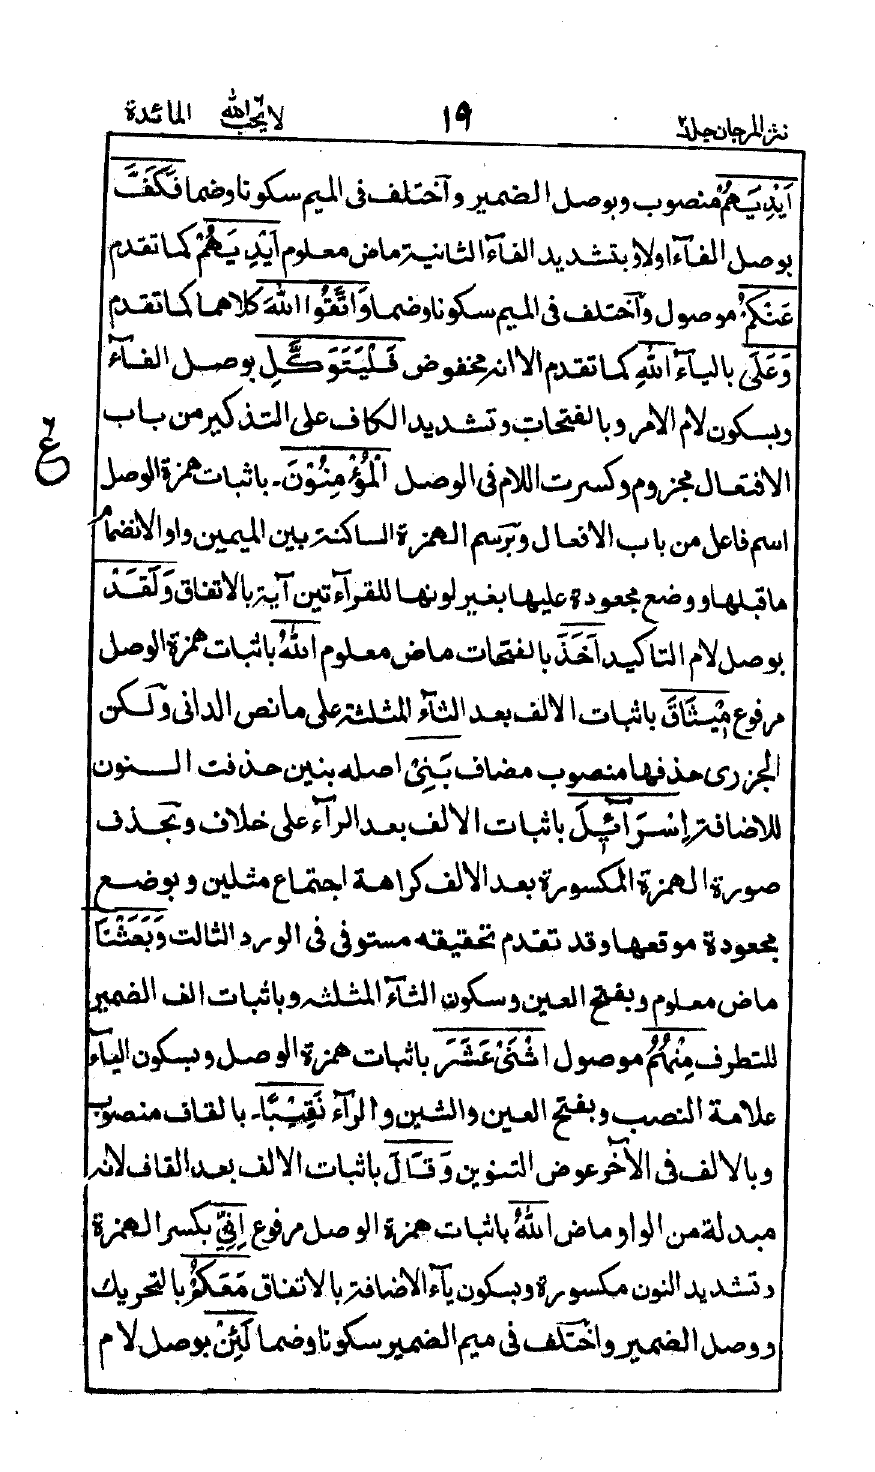 نثر المرجان جلد ٢ ١٩ لا يحب الله المائدة
اَيْدِيَهُمْ منصوب وبوصل الضمير وآختلف فى الميم سكونا وضما فَكَفَّ
بوصل الفآء اولا وبتشديد الفآء الثانية ماض معلوم اَيْدِيَهُمْ كما تقدم
عَنْكُمْ موصول وآختلف فى الميم سكونا وضما وَاتَّقُوا اللهَ كلاهما كما تقدم
وَعَلَى بالياء اللهِ كما تقدم الا انه مخفوض فَلْيَتَوَكَّلِ بوصل الفآء
وبسكون لام الامر وبالفتحات وتشديد الكاف على التذكير من باب
الافتعال مجزوم وكسرت اللام فى الوصل الْمُؤْمِنُوْنَ۔ باثبات همزة الوصل
اسم فاعل من باب الافعال وبرسم الهمزة الساكنة بين الميمين واوا لانضمام
ما قبلها ووضع مجعودة عليها بغير لونها للقرآءتين آية بالاتفاق وَلَقَدْ
بوصل لام التاكيد اَخَذَ بالفتحات ماض معلوم اللهُ باثبات همزة الوصل
مرفوع مِيْثَاقَ باثبات الالف بعد الثآء المثلثة على ما نص الدانى ولكن
الجزرى حذفها منصوب مضاف بَنِىْ اصله بنين حذفت النون
للاضافة اِسْرَآئِيْلَ باثبات الالف بعد الرآء على خلاف وبحذف
صورة الهمزة المكسورة بعد الالف كراهة اجتماع مثلين وبوضع
مجعودة موقعها وقد تقدم تحقيقه مستوفى فى الورد الثالث وَبَعَثْنَا
ماض معلوم وبفتح العين وسكون الثآء المثلثه وباثبات الف الضمير
للتطرف مِنْهُمُ موصول اثْنَىْ عَشَرَ باثبات همزة الوصل وبسكون اليآء
علامة النصب وبفتح العين والشين والرآء نَقِيْبًا۔ بالقاف منصوب
وبالالف فى الآخر عوض التنوين وَقَالَ باثبات الالف بعد القاف لانه
مبدلة من الواو ماض اللهُ باثبات همزة الوصل مرفوع اِنِّىْ بكسر الهمزة
وتشديد النون مكسورة وبسكون يآء الاضافة بالاتفاق مَعَكُمْ بالتحريك
ووصل الضمير واختلف فى ميم الضمير سكونا وضما لَئِنْ بوصل لام
ع